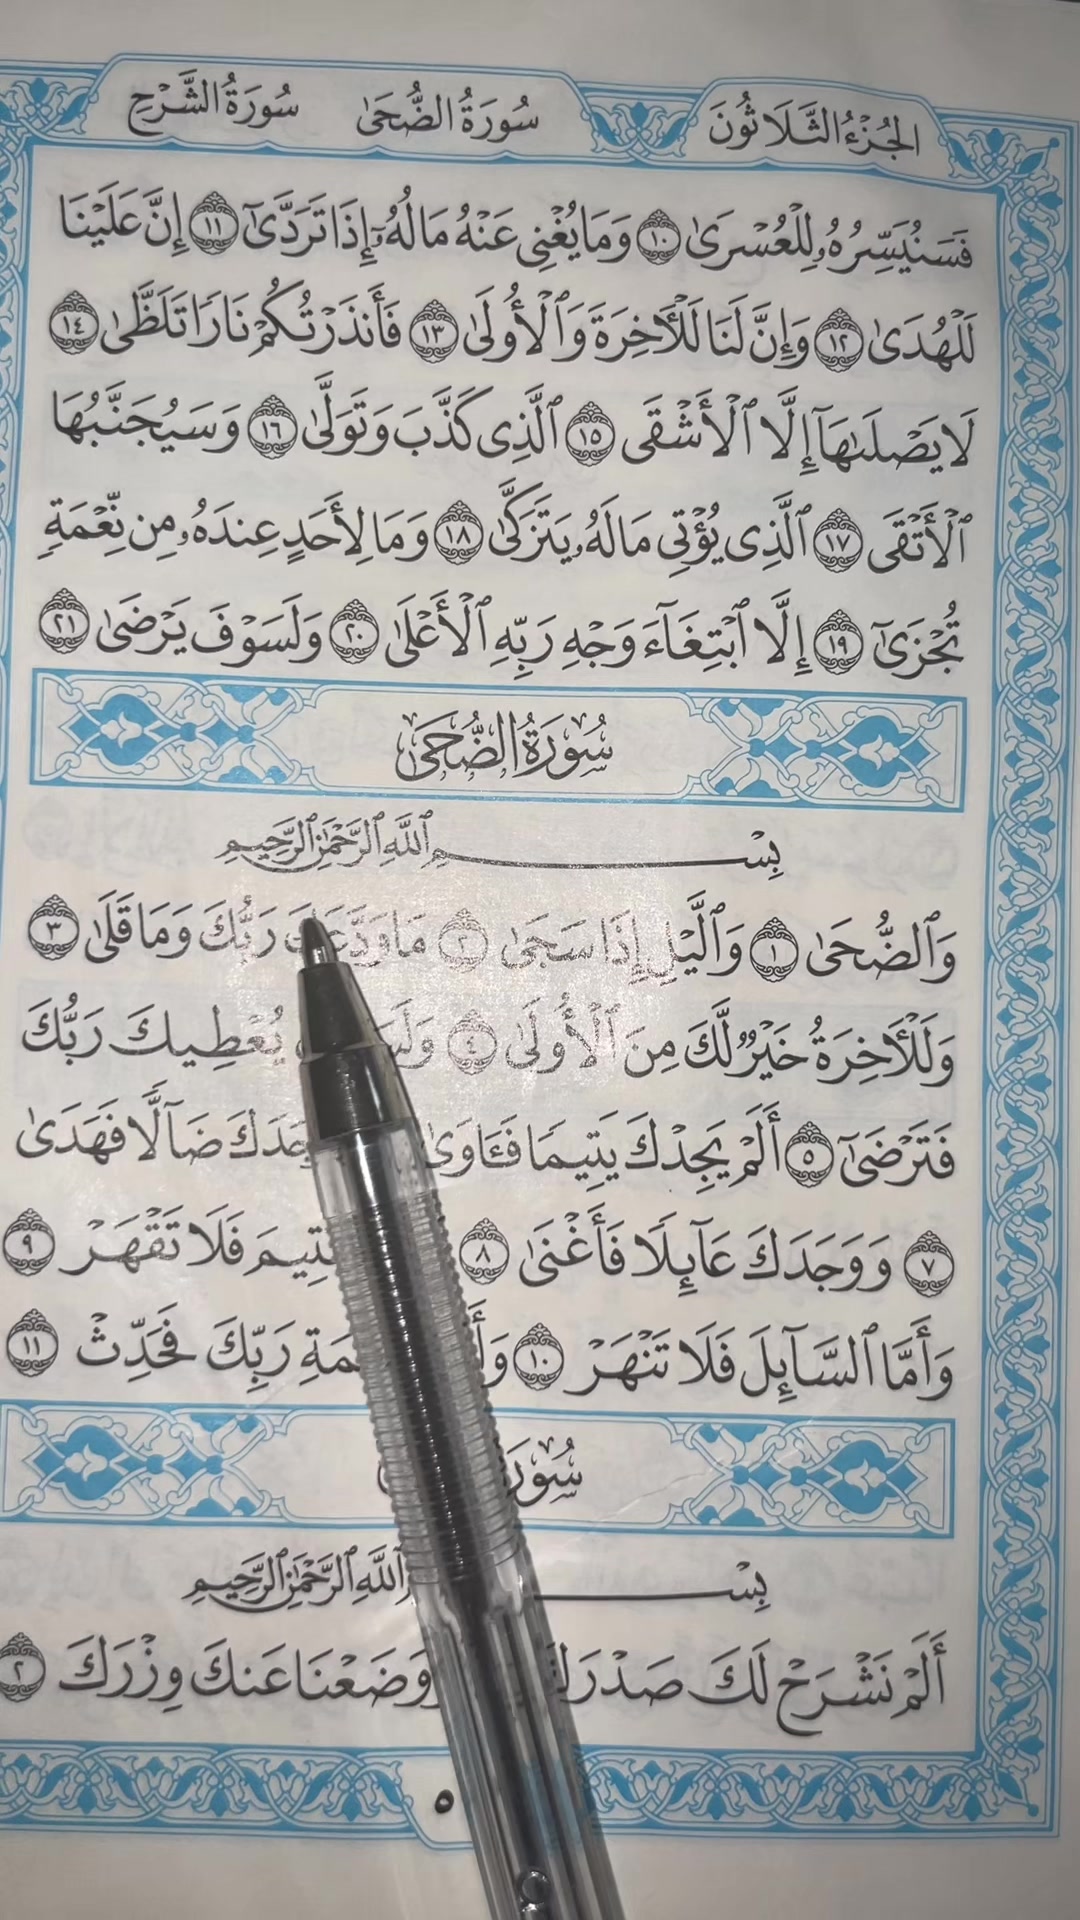 الجُزْءُ الثَّلَاثُونَ سُورَةُ الضُّحَىٰ سُورَةُ الشَّرْحِ
فَسَنُيَسِّرُهُۥ لِلْعُسْرَىٰ ١٠ وَمَا يُغْنِى عَنْهُ مَالُهُۥٓ إِذَا تَرَدَّىٰٓ ١١ إِنَّ عَلَيْنَا
لَلْهُدَىٰ ١٢ وَإِنَّ لَنَا لَلْـَٔاخِرَةَ وَٱلْأُولَىٰ ١٣ فَأَنذَرْتُكُمْ نَارًا تَلَظَّىٰ ١٤
لَا يَصْلَىٰهَآ إِلَّا ٱلْأَشْقَى ١٥ ٱلَّذِى كَذَّبَ وَتَوَلَّىٰ ١٦ وَسَيُجَنَّبُهَا
ٱلْأَتْقَى ١٧ ٱلَّذِى يُؤْتِى مَالَهُۥ يَتَزَكَّىٰ ١٨ وَمَا لِأَحَدٍ عِندَهُۥ مِن نِّعْمَةٍ
تُجْزَىٰٓ ١٩ إِلَّا ٱبْتِغَآءَ وَجْهِ رَبِّهِ ٱلْأَعْلَىٰ ٢٠ وَلَسَوْفَ يَرْضَىٰ ٢١
سُورَةُ الضُّحَىٰ
بِسْمِ ٱللَّهِ ٱلرَّحْمَٰنِ ٱلرَّحِيمِ
وَٱلضُّحَىٰ ١ وَٱلَّيْلِ إِذَا سَجَىٰ ٢ مَا وَدَّعَكَ رَبُّكَ وَمَا قَلَىٰ ٣
وَلَلْـَٔاخِرَةُ خَيْرٌ لَّكَ مِنَ ٱلْأُولَىٰ ٤ يُعْطِيكَ رَبُّكَ
فَتَرْضَىٰٓ ٥ أَلَمْ يَجِدْكَ يَتِيمًا فَـَٔاوَىٰ ضَآلًّا فَهَدَىٰ
٧ وَوَجَدَكَ عَآئِلًا فَأَغْنَىٰ ٨ فَلَا تَقْهَرْ ٩
وَأَمَّا ٱلسَّآئِلَ فَلَا تَنْهَرْ ١٠ رَبِّكَ فَحَدِّثْ ١١
بِسْمِ ٱللَّهِ ٱلرَّحْمَٰنِ ٱلرَّحِيمِ
أَلَمْ نَشْرَحْ لَكَ صَدْرَكَ وَوَضَعْنَا عَنكَ وِزْرَكَ ٢